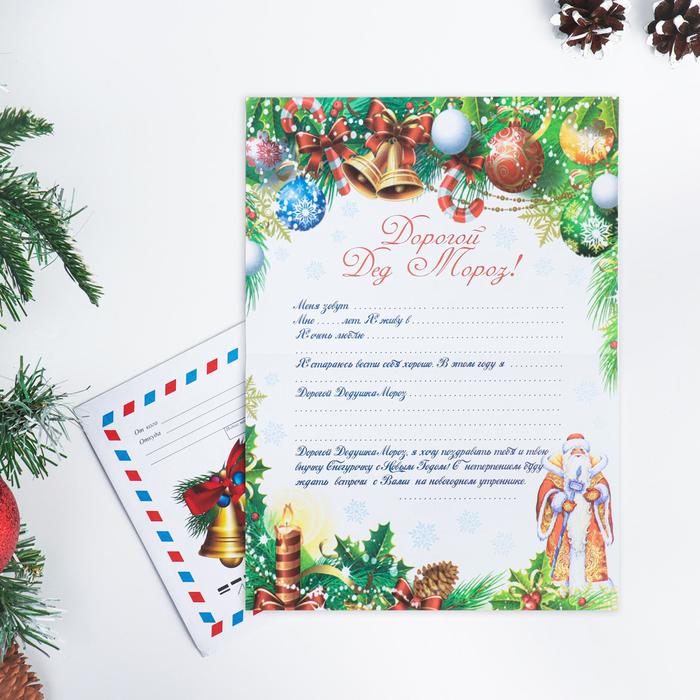 Дорогой
Дед Мороз!
Меня зовут
Мне ..... лет. Я живу в
Я очень люблю
Я стараюсь вести себя хорошо. В этом году я
Дорогой Дедушка Мороз
Дорогой Дедушка Мороз, я хочу поздравить тебя и твою
внучку Снегурочку с Новым Годом! С нетерпением буду
ждать встречи с Вами на новогоднем утреннике.
От кого
Откуда